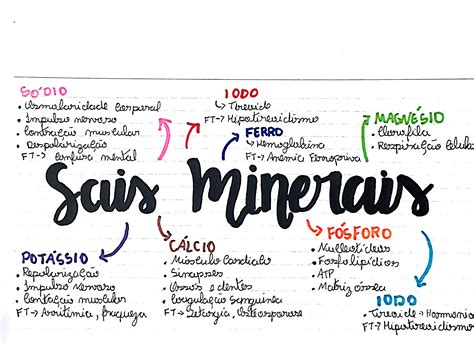 SÓDIO
• Osmolaridade corporal
• Impulso nervoso
• Contração muscular
• Despolarização
FT→ Confusão mental
IODO
↳ Tireoide
FT→ Hipotireoidismo
FERRO
↳ Hemoglobina
FT→ Anemia Ferropriva
MAGNÉSIO
• Clorofila
• Respiração
Sais Minerais
POTÁSSIO
• Repolarização
• Impulso nervoso
• Contração muscular
FT→ Arritmia, fraqueza
CÁLCIO
• Músculo Cardíaco
• Sinapses
• Ossos e dentes
• Coagulação Sanguínea
FT→ Letargia, Osteoporose
FÓSFORO
• Nucleotídeos
• Fosfolipídios
• ATP
• Matriz óssea
IODO
• Tireoide → Hormônio
FT→ Hipotireoidismo